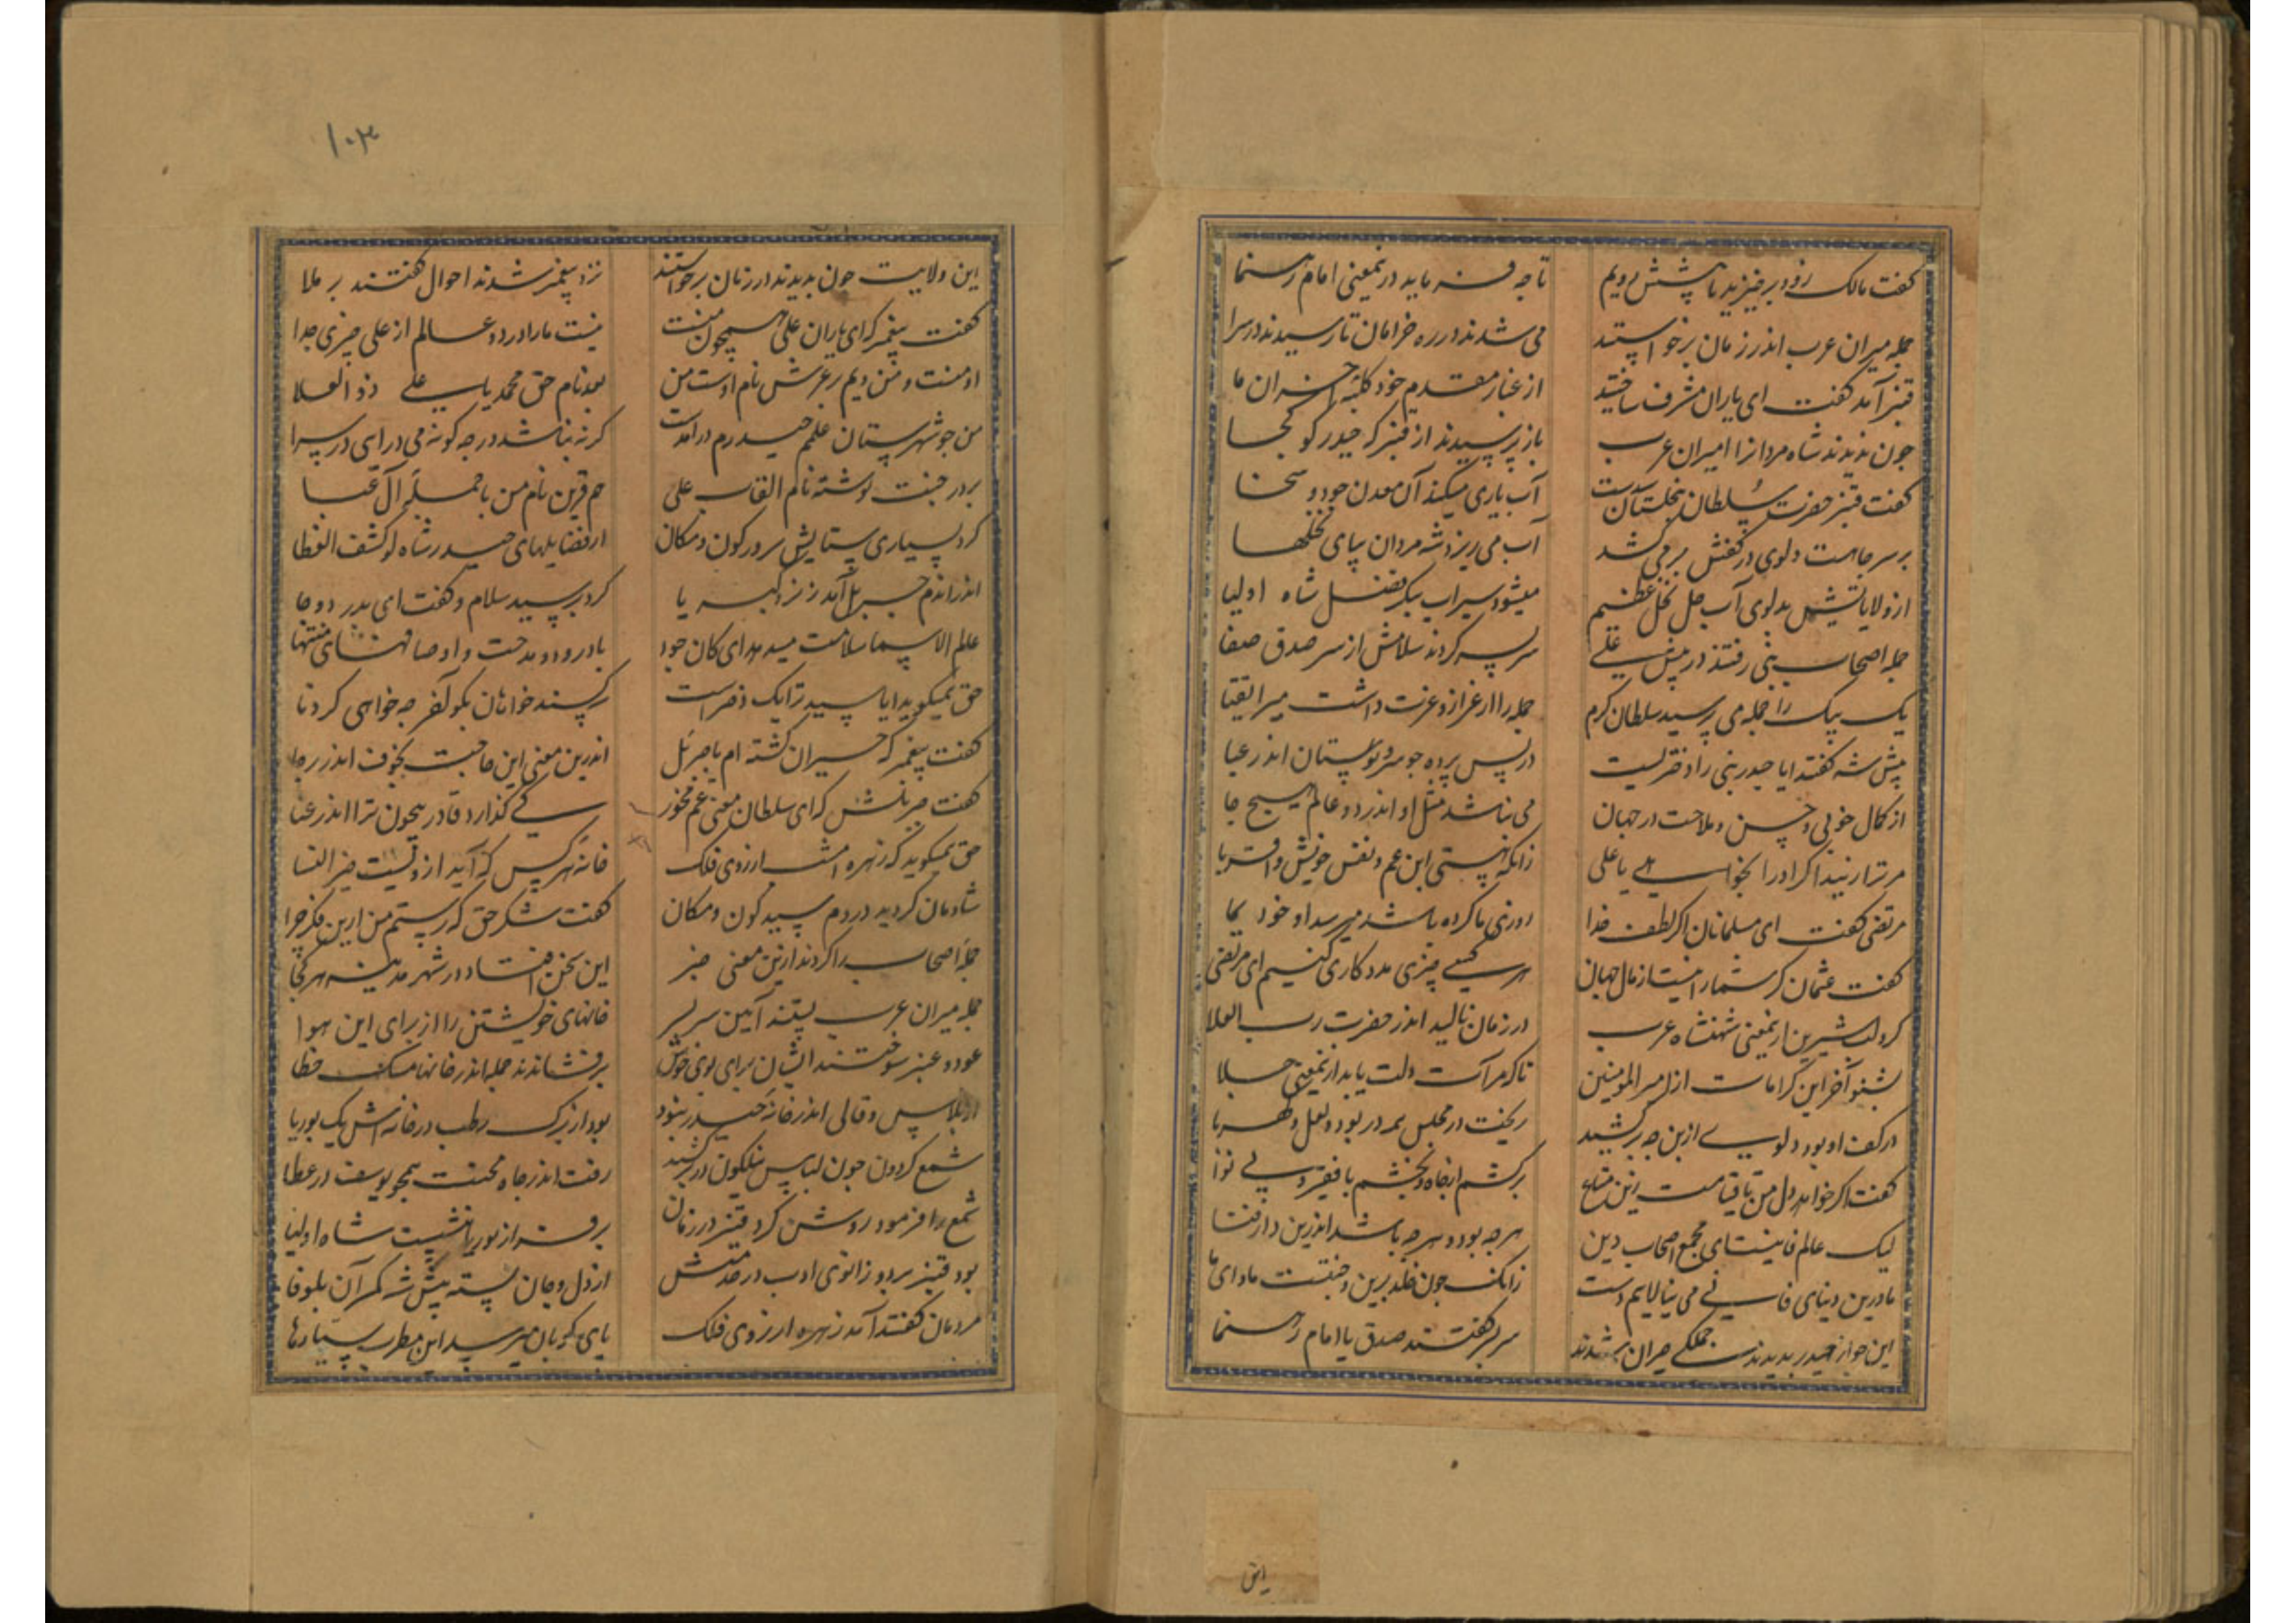 گفت مالک زود برخیزید تا پیشش رویم
تا چه فرماید درین معنی امام رهنما
جمله میران عرب اندر زمان برخواستند
می شدند در ره خرامان تا رسیدند در سرا
قنبر آمد گفت ای یاران مشرف ساختید
از غبار مقدم خود کلبه احزان ما
چون ندیدند شاه مردانرا امیران عرب
باز پرسیدند از قنبر که حیدر کو کجا
گفت قنبر حضرت سلطان نخلستان شدست
آب یاری میکند آن معدن جود و سخا
بر سر چاهست دلوی در کفش بر می کشد
آب می ریزد شه مردان بپای نخلها
از ولایاتش بدلوی آب چل نخل عظیم
میشود سیراب بنگر فضل شاه اولیا
جمله اصحاب نبی رفتند در پیش علی
سر بسر کردند سلامش از سر صدق صفا
یک بیک را جمله می پرسید سلطان کرم
جمله را از اعزاز و عزت داشت میر اتقیا
پیش شه گفتند ایا حیدر نبی را دختریست
در پس پرده چو سرو بوستان اندر عبا
از کمال خوبی و حسن و ملاحت در جهان
می نباشد مثل او اندر دو عالم هیچ جا
مر ترا زیبد اگر او را بخواهی یا علی
زانکه هستی ابن عم و نفس خویش و اقربا
مرتضی گفت ای مسلمانان اگر لطف خدا
روزی ما کرده باشد میرسد او خود بما
گفت عثمان گر شما را نیست از مال جهان
هر کسی چیزی مددکاری کنیم ای مرتضی
کرد لب شیرین ازین معنی شهنشاه عرب
در زمان نالید اندر حضرت رب العلا
بشنو آخر این کرامات از امیر المومنین
تا که مرآت دلت یابد ازین معنی جلا
در کف او بود دلوی از بن چه بر کشید
ریخت در مجلس همه در بود و لعل و کهربا
گفت اگر خواهد دل من تا قیامت زین متاع
بر کشم از چاه و بخشم با فقیر و بی نوا
لیک عالم فانیست ای مجمع اصحاب دین
هر چه بود و هر چه باشد اندرین دار فنا
ما درین دنیای فانی می نیالاییم دست
زانک چون خلد برین و جنتست ماوای ما
این چو از حیدر بدیدند جملگی حیران شدند
سر بسر گفتند صدق یا امام رهنما
این
۱۰۳
این ولایت چون بدیدند در زمان برخواستند
نزد پیغمبر شدند احوال گفتند بر ملا
گفت پیغمبر که ای یاران علی همچون منست
نیست ما را در دو عالم از علی چیزی جدا
او منست و من ویم بر عرش نام اوست من
بعد نام حق محمد یا علی ذو العلا
من چو شهرستان علمم حیدرم در آمدست
گر نه بناشد در چه گونه می درآیی در سرا
بر در جنت نوشته نام القاب علی
هم قرین نام من با جمله آل عبا
کرد بسیاری ستایش سرور کون و مکان
از فضایلهای حیدر شاه لو کشف الغطا
اندر اندم جبرئیل آمد ز نزد کبریا
کرد بر سید سلام و گفت ای بدر دوجا
علم الاسما سلامت میدهد ای کان جود
با درود و مدحت و اوصافهای منتها
حق همیگوید ایا سید ترا یک دختر است
گفت پیغمبر که حیران گشته ام با جبرئیل
اندرین معنی این حاجت بخوف اندر رجا
گفت جبریلش که ای سلطان معنی غم مخور
کی گذارد قادر بیچون ترا اندر عنا
حق همیگوید که زهره امشب از روی فلک
خانه هر کس که آید از ویست خیر النسا
شادمان گردید در دم سید کون و مکان
گفت شکر حق که رستم من ازین فکر چرا
جمله اصحاب را کردند ازین معنی خبر
این سخن افتاد در شهر مدینه هر کجا
جمله میران عرب بستند آیین سر بسر
خانهای خویشتن را از برای این هوا
عود و عنبر سوختند ایشان برای بوی خوش
بر فشاندند جمله اندر خانها مشک خطا
از پلاس و قالی اندر خانه حیدر نبود
بود از برگ رطب در خانه اش یک بوریا
شمع گردون چون لباس نیلگون در بر کشید
رفت اندر چاه محنت همچو یوسف در عطا
شمع را فرمود روشن کرد قنبر در زمان
بر فراز بوریا بنشست شاه اولیا
بود قنبر بر دو زانوی ادب در خدمتش
از دل و جان بسته پیش شه کمر آن با وفا
مردمان گفتند آمد زهره از روی فلک
پای کوبان میرسد این مطرب سیارها